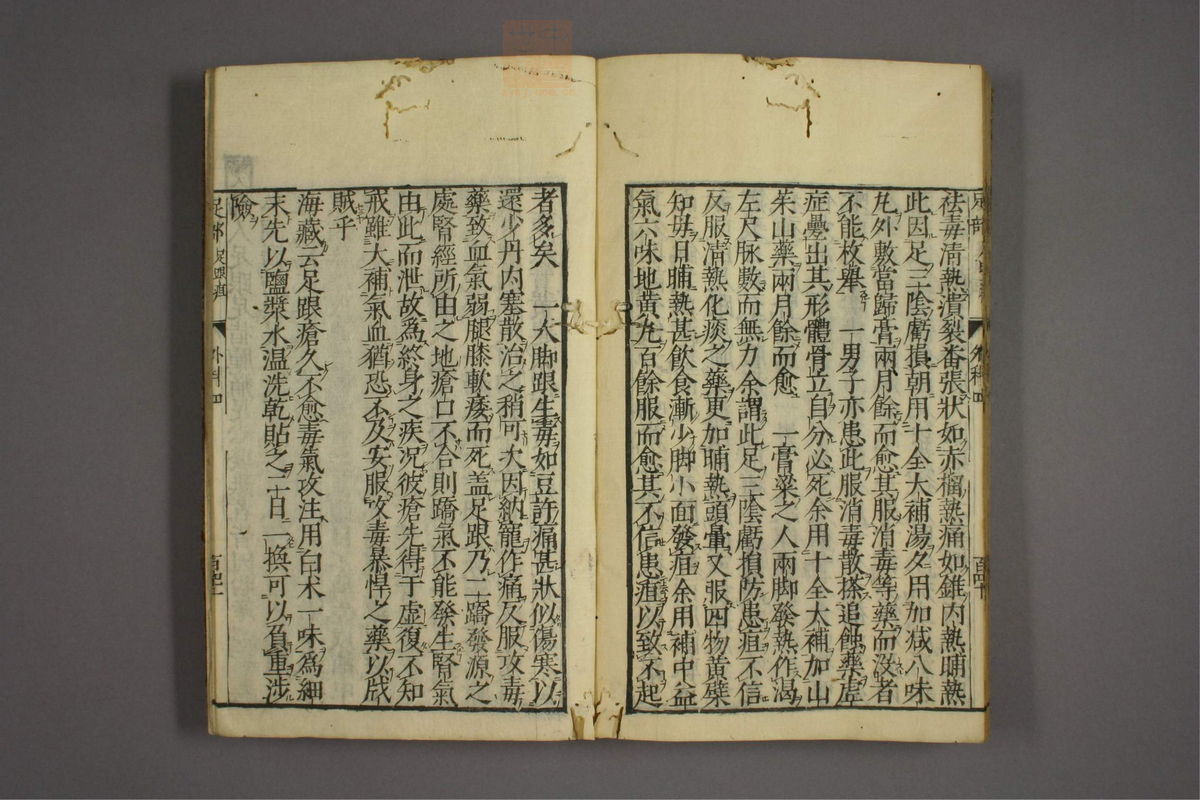 祛毒清熱潰裂番張狀如赤榴熱痛如錐内熱晡熱
此因足三陰虧損朝用十全大補湯夕用加減八味
丸外敷當歸膏兩月餘而愈其服消毒等藥而沒者
不能枚舉　一男子亦患此服消毒散搽追蝕藥虛
症疊出其形體骨立自分必死余用十全大補加山
茱山藥兩月餘而愈　一膏粱之人兩脚發熱作渴
左尺脉數而無力余謂此足三陰虧損防患疽不信
反服清熱化痰之藥更加晡熱頭暈又服四物黄檗
知母日晡熱甚飲食漸少脚小面發疽余用補中益
氣六味地黄丸百餘服而愈其不信患疽以致不起
者多矣　一大脚跟生毒如豆許痛甚狀似傷寒以
還少丹内塞散治之稍可大因納寵作痛反服攻毒
藥致血氣弱腿膝軟痿而死盖足跟乃二蹻發源之
處腎經所由之地瘡口不合則蹻氣不能發生腎氣
由此而泄故爲終身之疾况彼瘡先得于虛復不知
戒雖大補氣血猶恐不及安服攻毒暴悍之藥以戕
賊乎
海藏云足跟瘡久不愈毒氣攻注用白朮一味爲細
末先以鹽漿水温洗乾貼之二日一換可以負重涉
險
足部　足跟疽　外科四　百四十一